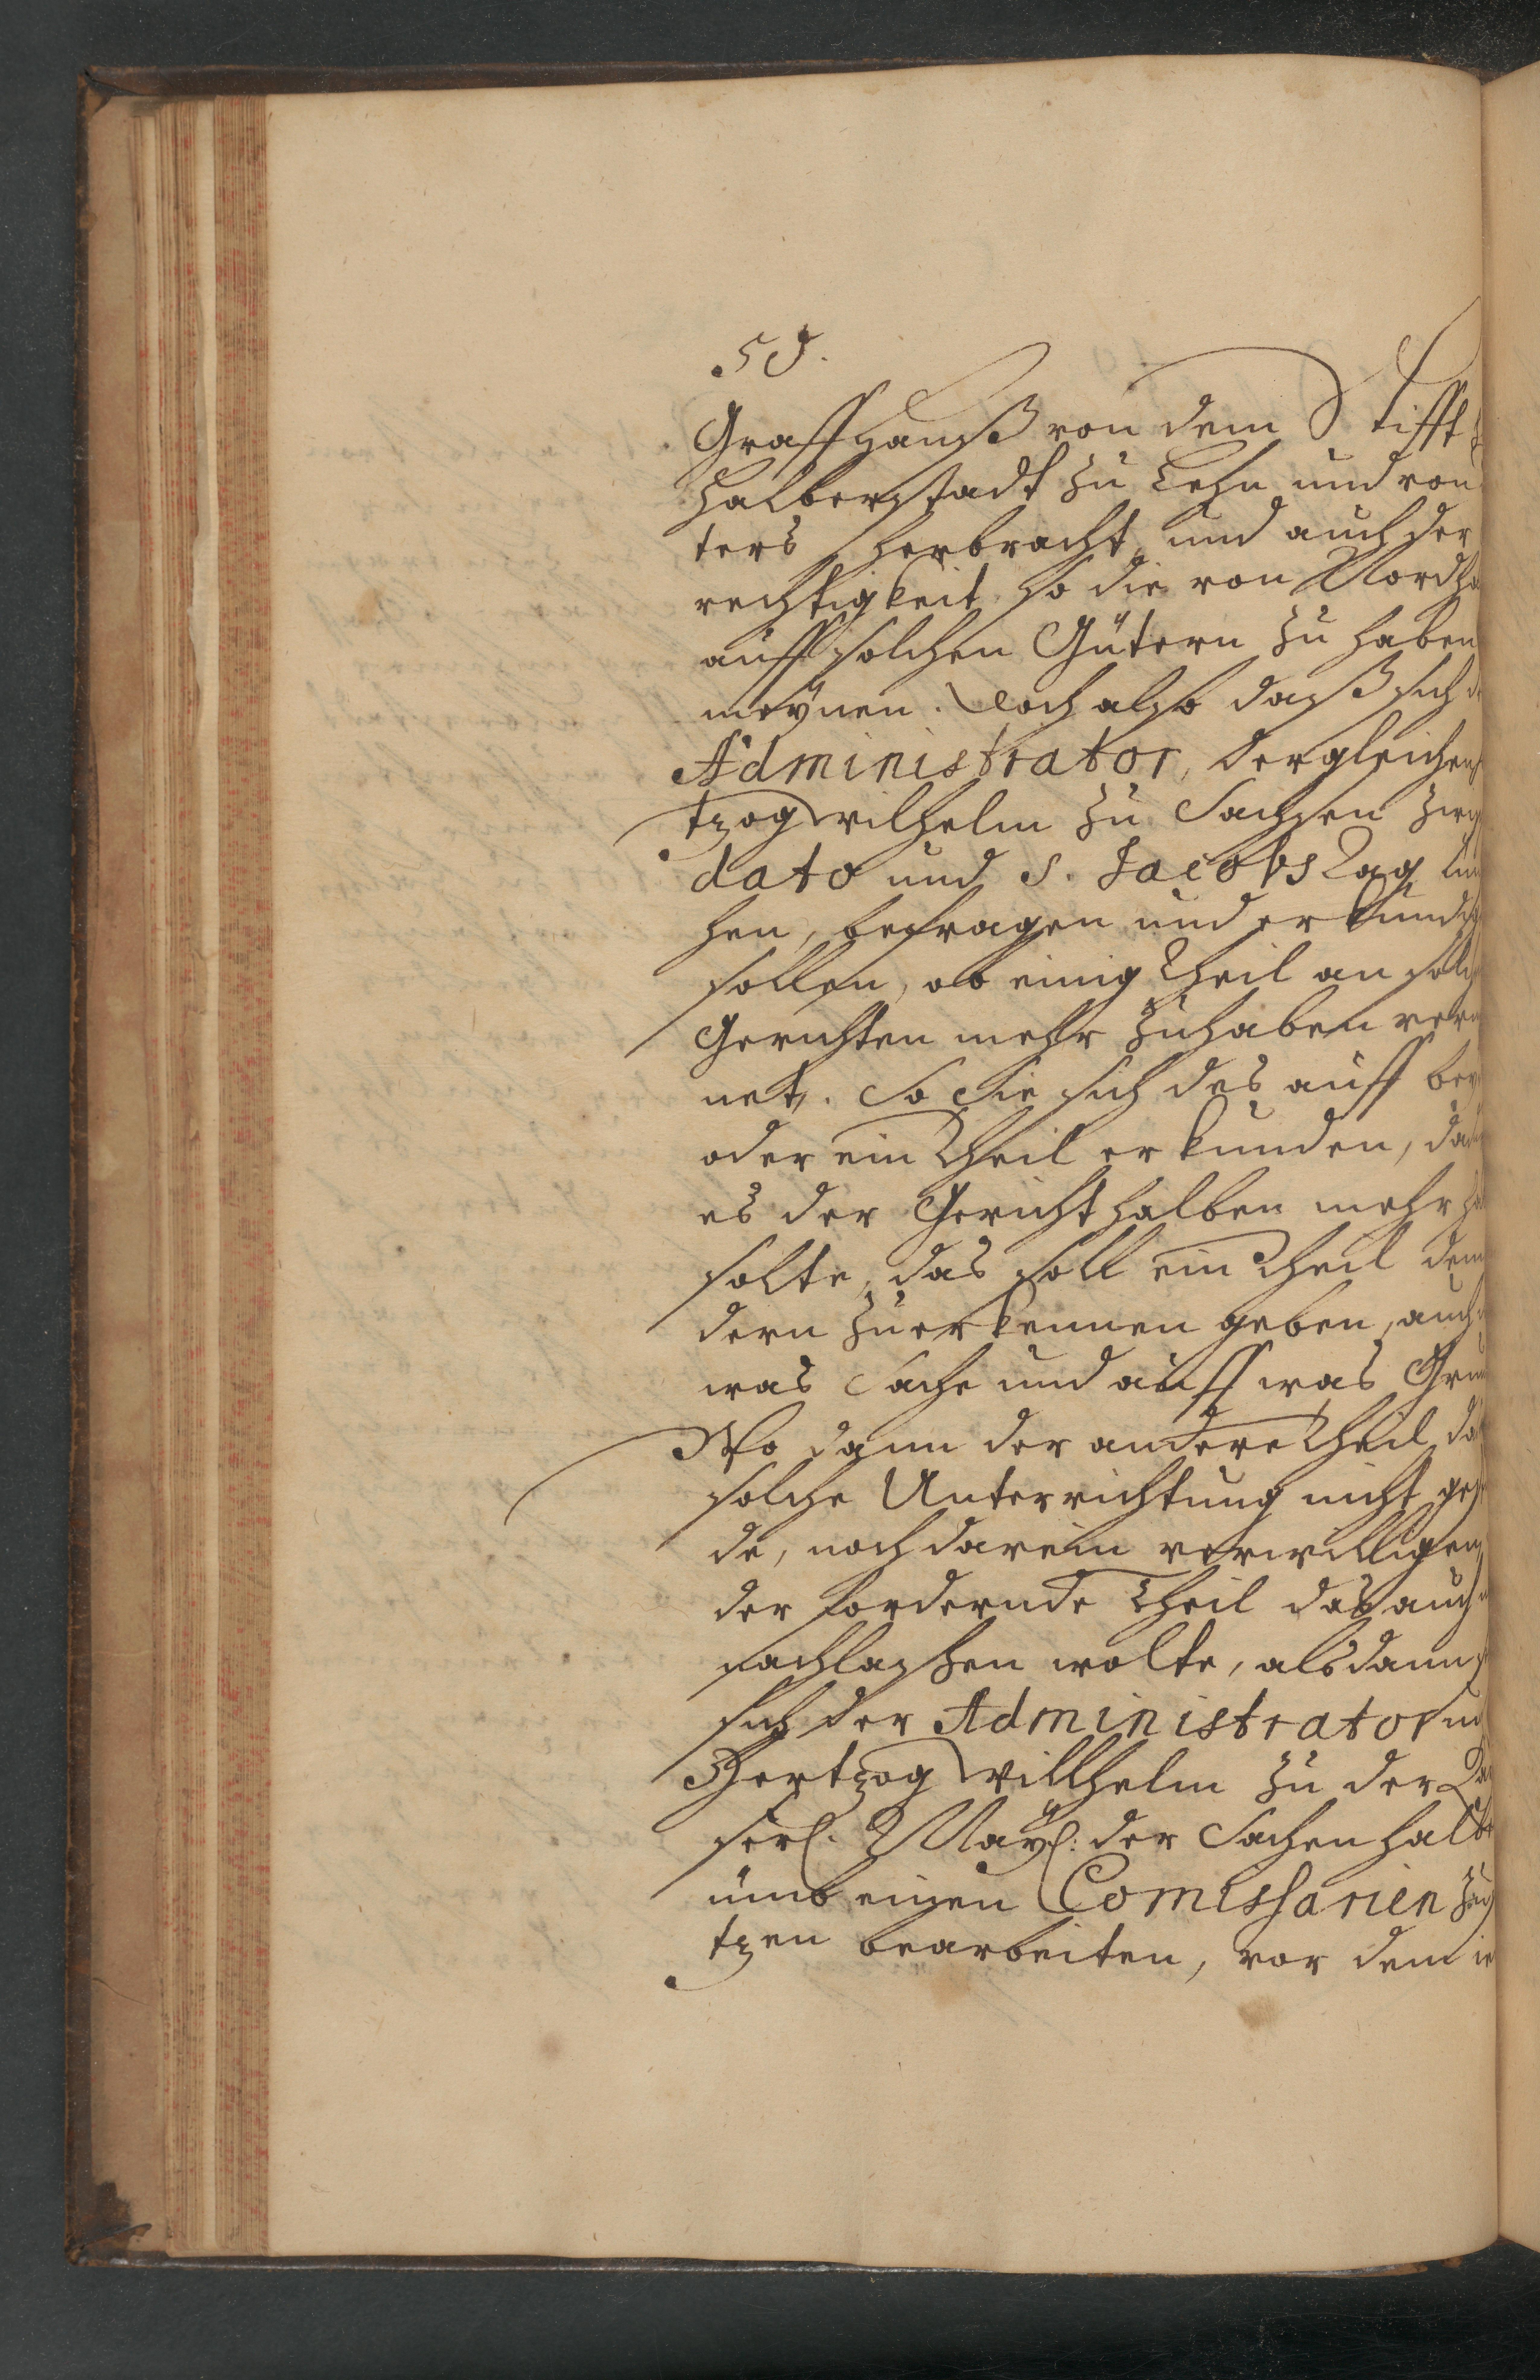 50.
Graffhauß von dem Stifft
Halberstadt zu Lehn und von
ters herbracht, und auch der
rechtigkeit so die von Nordha
auff solchen Gütern zu haben
meÿnen. Doch also daß sich d
Administrator, dergleichen
tzog Wilhelm zu Sachsen zwi
dato und S. Jacobs Tag
hen, befragen und erkund
sollen, ob einig Theil an solch
Gerichten mehr zuhaben verm
net. So Sie sich des auff bey
oder ein Theil erkunden, da
es der Gericht halben mehr ha
solte, das soll ein Theil dem
dern zuerkennen geben, auch
was Sache und auff was Gru
Wo dann der andere Theil da
solche Unterrichtung nicht ge
de, noch darein verwilligen,
der fordernde Theil das auch
nachlassen wolte, alsdann
sich der Administrator und
Hertzog Willhelm zu der
serl. Maÿl: der Sachen halbe
ümb einen Comissarien zu
tzen bearbeiten, vor dem ie